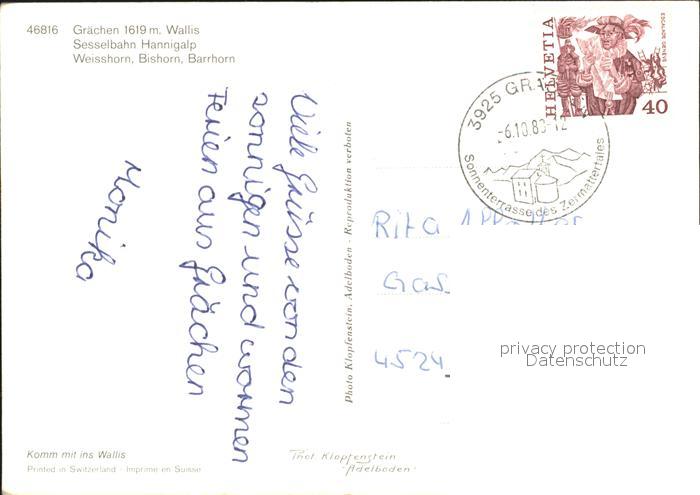 46816 Grächen 1619 m. Wallis
Sesselbahn Hannigalp
Weisshorn, Bishorn, Barrhorn
Viele Grüsse von den
sonnigen und warmen
Ferien aus Grächen
Monika
Komm mit ins Wallis
Printed in Switzerland - Imprimé en Suisse
Photo Klopfenstein, Adelboden - Reproduktion verboten
Phot. Klopfenstein
Adelboden
HELVETIA
ESCALADE GENÈVE
40
3925 GRÄ
-6.10.83-12
Sonnenterrasse des Zermattertales
Rita
4524
privacy protection
Datenschutz